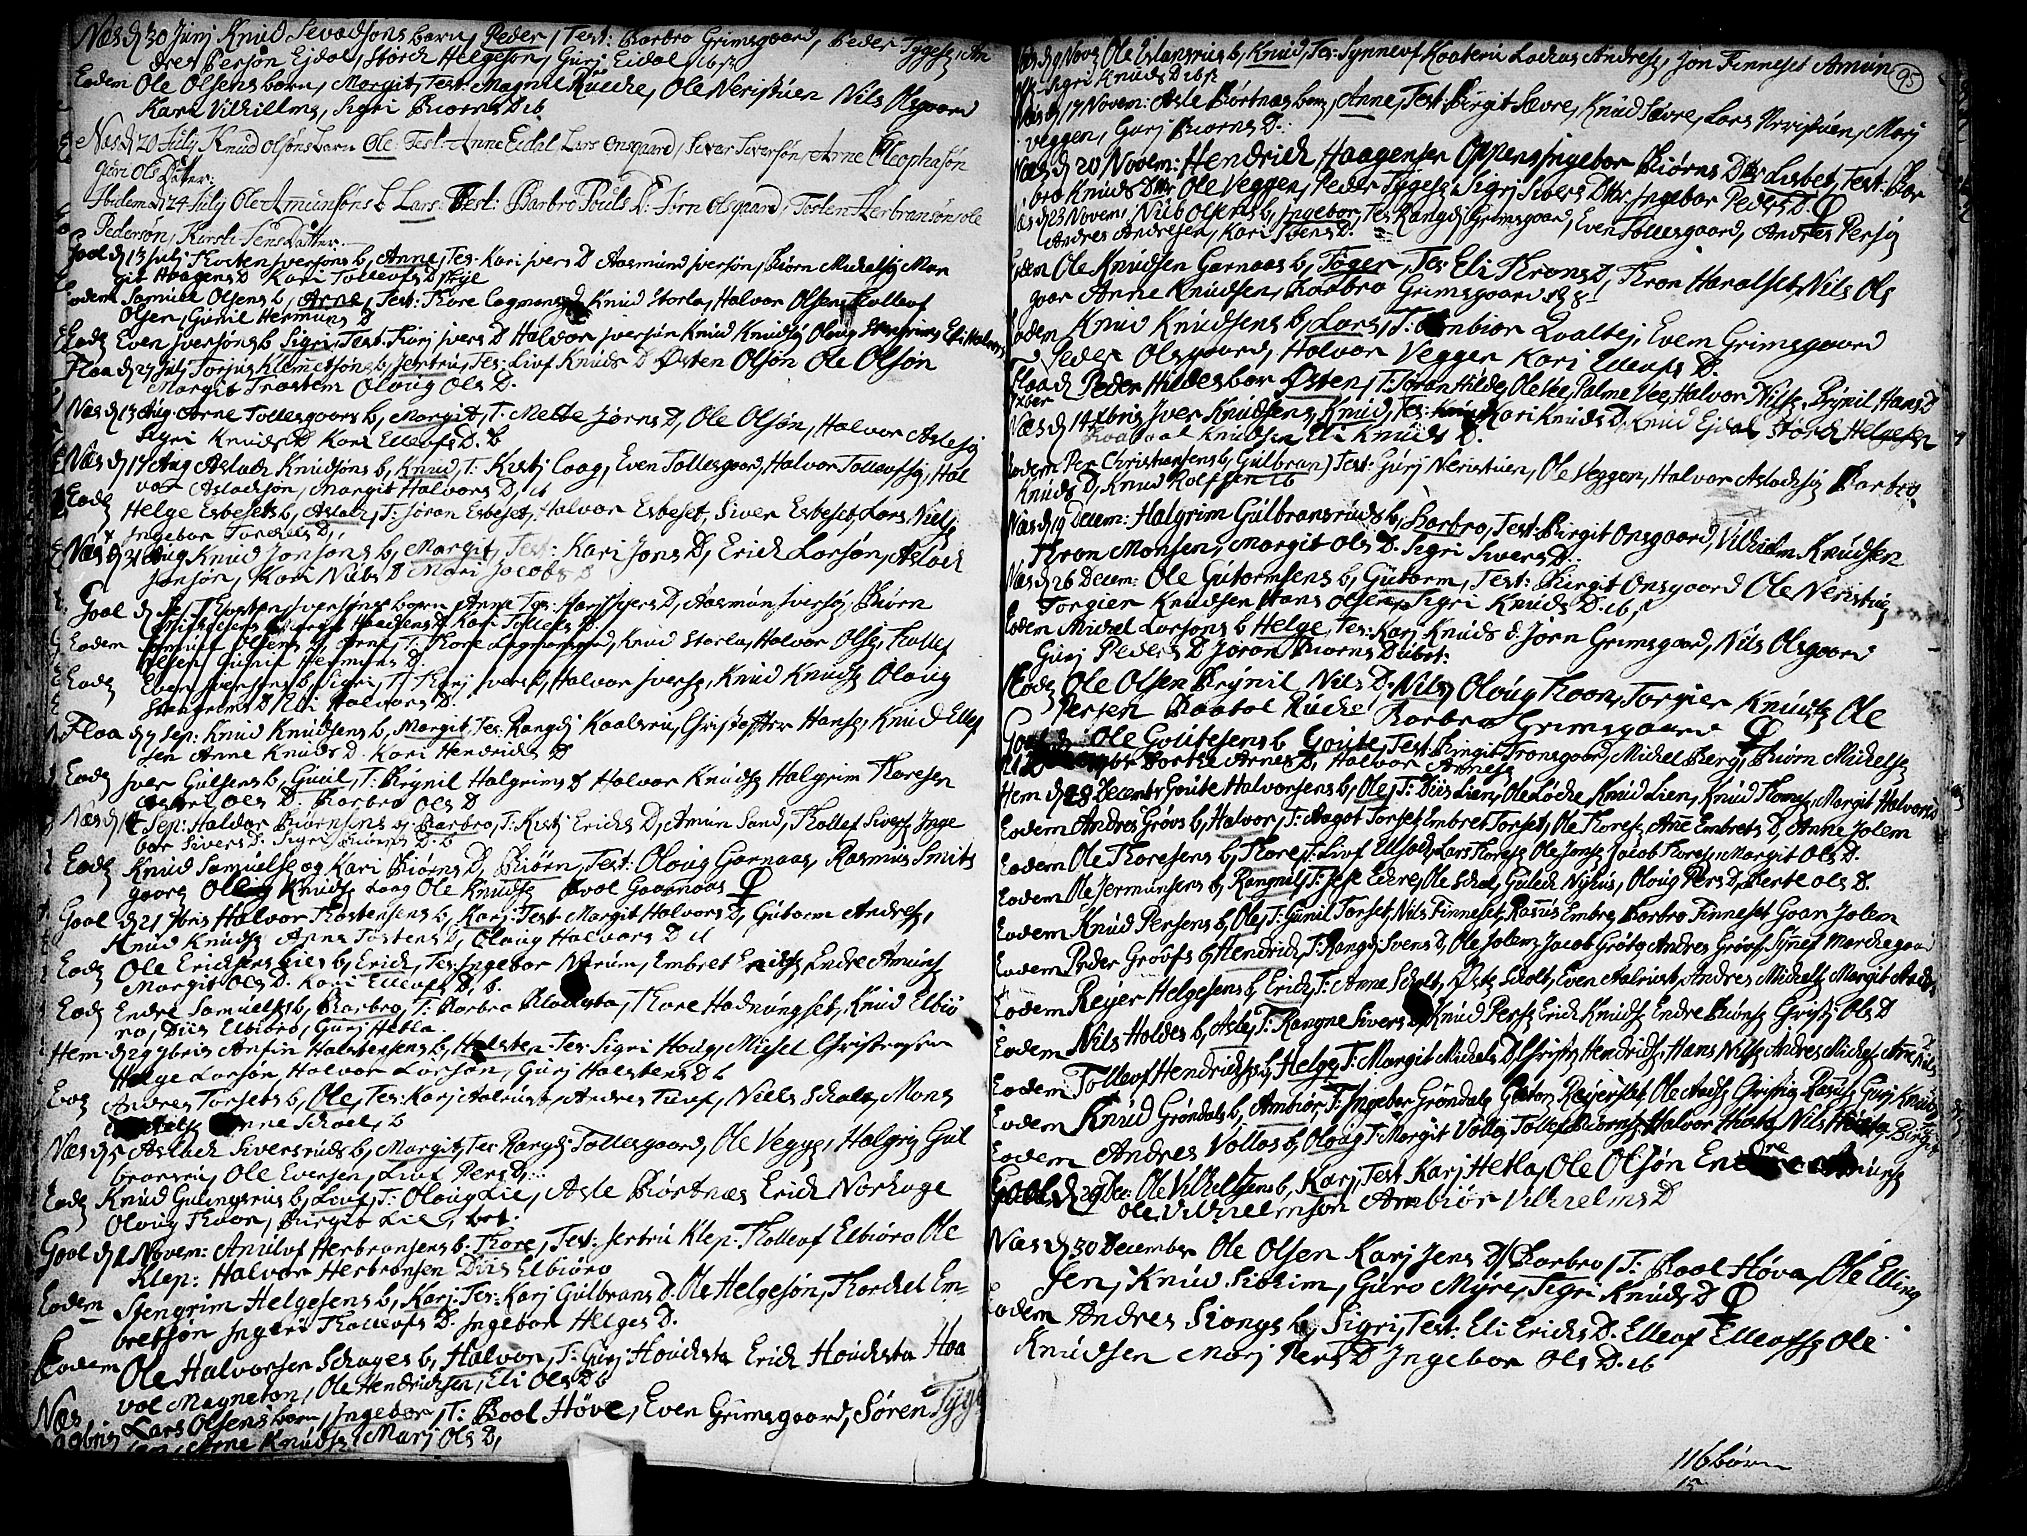 Næs d 30 Junj Knud Sevadsøns barn, Peder, Test: Barbro Grimsgaard, Peder Tygesz An
dres Persøn Ejdal, Storch Helgesøn, Gurj Eidal
Eodem Ole Olsens barn, Margit, Test: Magnil Rücke, Ole Neristuen Nils Olsgaard
Kari Vilhillms, Sigri Biørns D ib
Næs d 20 July Knud Olsøns barn Ole Test: Anne Eidal Lars Onsgaard, Sivar Siversøn, Arne Cleophasøn
Guri Ols Datter.
Ibidem d 24 July Ole Amunsøns b Lars: Test: Barbro Pouls D: Jørn Olsgaard, Tosten Herbransøn ole
Pedersøn, Kirsti Jens Datter
Gool d 13 julj Thosten Jversøns b, Anne, Tes: Kari Jvers D Aasmund Jversøn, Biørn Michelsz Mar
git Haagens D Kari Tollevfs D
Eodem Samuel Olsens b, Arne, Test: Thore Lagmand, Knud Storla, Halvor Olsen Tholleuf
Olsen, Gunil Hermuns D
Eodz Even Jversøns b Sigri, Test: Kirj Jvers D Halvor Jversøn Knud Knudsz Oloug Stengrims Eli Halvors
Flaa d 27 julj Torjus Klemetsøns b, Jertru, Tes: Livf Knuds D Østen Olsøn Ole Olsøn
Margit Trostem Oloug Ols D.
Næs d 13 Aug: Arne Tollefsgaars b, Margit, T: Mette Jørns D, Ole Olsøn, Halvor Aslesøn
Sigri Knuds D Kari Ellevfs D. b
Næs d 17 Aug Aslach Knudsøns b, Knud, T: Kirstj Laag, Even Tollefsgaard, Halvor Tollevfsz, Hal
vor Aslachsøn, Margit Halvors D, ib
Eodz Helge Esbesets b, Aslach, T: Jøran Esbeset, Halvor Esbeset, Siver Esbeset, Lars Nielsz
Ingebor Torchels D,
Næs d 31 Aug Knud Jonsøns b, Margit, Test: Kari Jons D, Erich Larsøn, Aslach
Jonsøn, Kari Nils D Mari Jacobs D
Gool d Sep: Thosten Jversøns barn Anne Tes: Kari Jvers D, Aasmun Jversøn, Biørn
Michelsens Margit Haagens D Kari Tollevfs D.
Eodem Samuel Olsens b, Arne, T: Thore Lagmand, Knud Storla, Halvor Olsz, Tholef
Olsen, Gunil Hermuns D.
Eodz Even Jversens b, Sigri, T: Karj Jvers D, Halvor Jversz, Knud Knudsz Oloug
Stengrims D Eli Halvors D.
Flaa d 7 Sep: Knud Knudsens b, Margit, Tes: Rangdj Kaalsru, Christoffer Hansz, Knud Ellef
sen Anne Knuds D. Kari Hendrichs D
Eodz Jver Gulsens b, Guul, T: Brynil Halgrims D Halvor Knudsz Halgrim Thoresen
Ols D. Barbro Ols D
Næs d 14 Sep: Halvor Biørnsens b, Barbro, T: Kistj Erichs D, Amun Sand, Thollef Siversz Inge
bor Sivers D. Sigri Knuds D. b
Eodz Knud Samuelsz og Kari Biørns D, Biørn, Test: Oloug Garnaas, Rasmus Smits
gaarz Oloug Knudsz Laag Ole Knudsz Bool Gaarnaas
Gool d 21 7bris Halvor Thostensens b, Kari: Test Margit Halvors D, Gutorm Andresz,
Knud Knudsz Anne Tostens D, Oloug Halvors D ib
Eodz Ole Erichsens Lies b, Erich, Tes: Ingebor Narum, Embret Erichsz Endre Amunsz
Margit Ols D. Kari Ellevfs D. b.
Eodz Endre Samuelsz b, Barbro, T: Barbro Blachsta, Thore Hadnungset, Knud Elbiø
rn, Diis Elbiørn, Gurj Hetla.
Hem d 29 7bris Anfin Halstensens b, Halsten Tes: Sigri Houg, Michel Christensen
Helge Larsøn Halvor Larsøn, Gurj Halstens D b
Eodz Andres Torsets b, Ole, Tes: Karj Aalrust, Andres Tuvf, Niels Scholt, Mons
Anne Schoel, b
Næs d 5 Aslach Siversruds b, Margit, Tes Rangdj Tollefsgaard, Ole Veggez, Halgrim Gul
bransru, Ole Eversen, Livf Pers D.
Eodz Knud Gulengsrus b, Livf, T: Oloug Lie, Asle Biørtnæs Erich Norhage
Oloug Thoen, Birgit Lie
Gool d 2 Novem: Anulvf Herbransens b: Thore, Test: Jertru Klep: Tholleof Elbiøro Ole
Klep: Halvor Herbransen Diis Elbiøro
Eodem Stengrim Helgesens b, Kari: Tes: Karj Gulbrans D. Ole Helgesøn, Thorchel Em-
bretsøn Ingeri Tholleofs D. Ingebor Helges D.
Eodem Ole Halvorsen Schages b, Halvor, T: Gurj Houchsta Erich Houchsta Haa
vol Magneton, Ole Hendrichsen, Eli Ols D b
Næs Lars Olsens barn, Ingebor, T: Bool Høve, Even Grimsgaard, Søren Tyge
9bris sen, Arne Knudsz Marj Ols D,
Næs d 9 Nov: Ole Eslansrus b, Knud, Tes: Synnevf Kaateru Lochas Andresz, Jon Finneset Amun
Sigri Knuds D ibst
Næs d 17 Novem: Asle Biørtnæs barn, Anne, Test: Birgit Sævre, Knud Sævre, Lars Neristuen, Marj
Veggen, Gurj Biørns D.
Næs d 20 Novem: Hendrich Haagensen Oppens Ingebor Biørns D ibr Lisbet, Test: Bar
bro Knuds D Ole Veggen, Peder Tygesz Sigri Sivers D Ingebor Peders D.
Næs d 23 Novem, Niels Olsens b, Ingebor, Tes Rangdj Grimsgaard, Even Tollefsgaard, Andres Persøn
Andres Andresen, Kari Suens D.
Eodem Ole Knudsen Garnaas b, Tøger, Tes: Eli Throns D, Thron Haralset, Nils Ols
gaar Anne Knudsen, Barbro Grimsgaard
Eodem Knud Knudsens b, Lars, T: Ambiør Qvaltej, Even Grimsgaard
Peder Olsgaard, Halvor Vegger Kari Ellevfs D.
Flaa d Peder Hildes bar Østen, T: Jøran Hilde, Ole Vee, Palme Vee, Halvor Nilsz, Brynil Hans D
Xber
Næs d 14 Xbris Jver Knudsens, Knud, Tes: Kari Knuds D, Knud Ejdal Storch Helgesen
Knudsen Eli Knuds D.
Eodem Per Christiansens b, Gulbran) Test: Gurj Neristuen, Ole Veggen, Halvor Aslachsz Barbro
Knuds D, Knud Rolfsen ib
Næs d 19 Decem: Halgrim Gulbransruds b, Barbro, Test: Birgit Onsgaard, Vilhelm Knudsen
Thron Monsen, Margit Ols D. Sigri Sivers D.
Næs d 26 Decem: Ole Gutormsens b, Gutorm, Test: Birgit Onsgaard Ole Neristuz
Torgier Knudsen Hans Olsen, Sigri Knuds D. ib
Eodem Michel Larsøns b Helge, Tes: Karj Knuds d. Jørn Grimsgaard, Nils Olsgaard
Gurj Peders D Jøran Biørns D ibst:
Eodz Ole Olsen Brynil Nils D. Nils, Oloug Thoon, Torgier Knudsz Ole
Persen Baatol Rucke Barbro Grimsgaard
Gool d: Ole Goutesens b Goute, Test: Birgit Tronsgaard, Michel Berg, Biørn Michelsz
Dorthe Arnes D, Halvor Arnesz
Hem d 28 Decembr Goute Halvorsens b, Ole, T: Diis Lien, Ole Løche Knud Lien, Knud Thomesz Margit Halvors D
Eodem Andres Grøvs b, Halvor, T: Aagot Torset Embret Torset, Ole Thoresz Añe Embrets D, Anne Jolem
Eodem Ole Thoresens b, Thore, T: Livf Ulsad, Lars Thoresz Ole Jonsz Jacob Thoresz Margit Ols D.
Eodem Ole Jermunsens b, Rangnil, T: Jese Eckre, Ole Schal, Gulech Nyhus, Oloug Pers D, Berte Ols D.
Eodem Knud Persens b, Ole, T: Gunil Torset, Nils Finneset, Rasus Embre Barbro Finneset Goan Jolem
Eodem Peder Groøfs b, Hendrich, T: Rangdj Svens D, Ole Jolemz Jacob Grøtz Andres Grøvf Synev Marchegaar
Eodem Reijer Helgesens b, Erich, T: Anne Scholt, Østz Scholt, Even Aalrust, Andres Michels, Margit Andres
Eodem Nils Holdes b, Asle, T: Rangne Sivers D, Knud Persz Erich Knudsz Endre Biønsz Christj Ols D
Eodem Tolleof Hendrichsz b, Helge, T: Margit Michels D, Christz Hendrichs, Hans Nilsz Andres Michelsz Arne Nils D
Eodem Knud Grøndals b, Ambiør, T: Ingebor Grøndals Gutor Reijerset, Ole Andsz Christj Rasusz Gurj Knuds
Eodem Andres Vollas b, Oloug T: Margit Volla Tollef Biørnsz Halvor Hesta Nils Hesta Birgit
Gool d 29 Dec: Ole Vilhelmsens b, Kari, Test Karj Hetla, Ole Olsøn Endre Amunsz
Ole Vilhelmsøn Ambiør Vilhelms D
Næs d 30 December Ole Olsen Karj Jens D, Barbro, T: Baal Høva, Ole Elling
sen, Knud Siøheim, Guro Myre, Sigri Knuds D
Eodem Andres Siongs b, Sigri, Test: Eli Erichs D. Elleof Elleofsz Ole
Knudsen Marj Pers D Ingebor Ols D. ib
95
116 børn
15